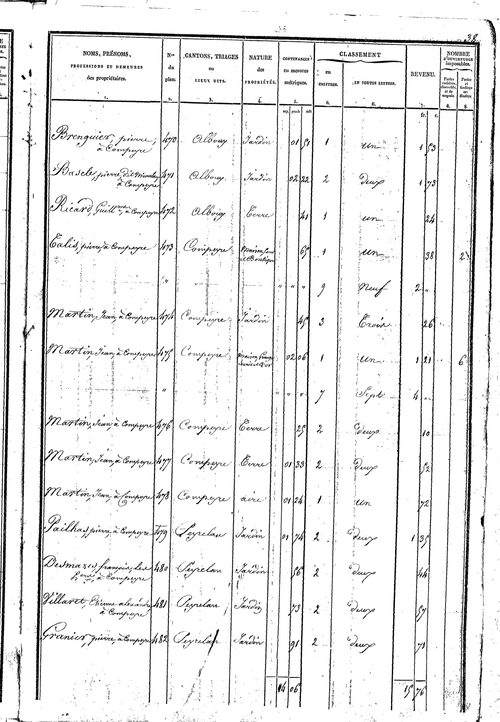 38
NOMS, PRÉNOMS, PROFESSIONS ET DEMEURES des propriétaires. | Nos du plan. | CANTONS, TRIAGES OU LIEUX DITS. | NATURE des PROPRIÉTÉS. | CONTENANCES en mesures métriques. | CLASSEMENT en chiffres. | EN TOUTES LETTRES. | REVENU. | NOMBRE D'OUVERTURES imposables.
1. 2. 3. 4. 5. 6. 7. 8. 8.
Brenguier, pierre, à Compeyre 470 Albouy Jardin 01 51 1 un 1 53
pierre à Compeyre 471 Albouy Jardin 02 22 2 deux 1 73
Ricard, à Compeyre 472 Albouy Terre 41 1 un 24
Talis, pierre, à Compeyre 473 Compeyre 65 1 un 38 2
" " " " " 9 Neuf 2 "
Martin, Jean, à Compeyre 474 Compeyre Jardin 45 3 Trois 26
Martin, Jean, à Compeyre 475 Compeyre 02 06 1 un 1 21 6
" " " " 7 Sept 4
Martin, Jean, à Compeyre 476 Compeyre Terre 25 2 deux 10
Martin, Jean, à Compeyre 477 Compeyre Terre 01 33 2 deux 52
Martin, Jean, à Compeyre 478 Compeyre aire 01 24 1 un 72
Pailhas, pierre, à Compeyre 479 Peyrelau Jardin 01 74 2 deux 1 35
Desmazes, françois, à Compeyre 480 Peyrelau Jardin 56 2 deux 44
Villaret, à Compeyre 481 Peyrelau Jardin 73 2 deux 57
Granier, pierre, à Compeyre 482 Peyrelau Jardin 91 2 deux 71
14 06 15 76